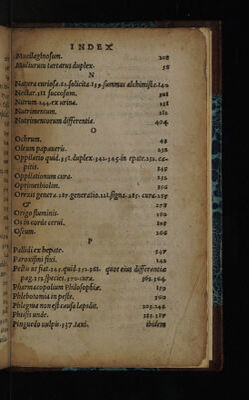 INDEX
Mucilaginosum. 208
Multorum tartarus duplex. 58
N
Natura curiosa. 21. solicita. 159. summus alchimista. 140
Nectar. 311 succosum. 301
Nitrum. 244. ex urina. 251
Nutrimentum. 212
Nutrimentorum differentia. 404
O
Ochrum. 48
Oleum papaueris. 232
Oppilatio quid. 351. duplex. 342. 345. in epate. 251. ca-
pitis. 249
Oppilationum cura. 252
Oprimethiolon. 290
Orexis genera. 287. generatio. 221. signa. 285. cura. 257
& 278
Origo fluminis. 180
Os in corde cerui. 208
Ossum. 206
P
Pallidi ex hepate. 347
Paroxismi fixi. 142
Pestis ut fiat. 245. quid. 252. 362. quot eius differentiæ
pag. 252. species. 370. cura. 363. 364
Pharmacopolium Philosophiæ. 159
Phlebotomia in peste. 360
Phlegma non est causa lapidis. 203. 248
Phtisis unde. 285. 287
Pinguedo uulpis. 337. taxi. ibidem